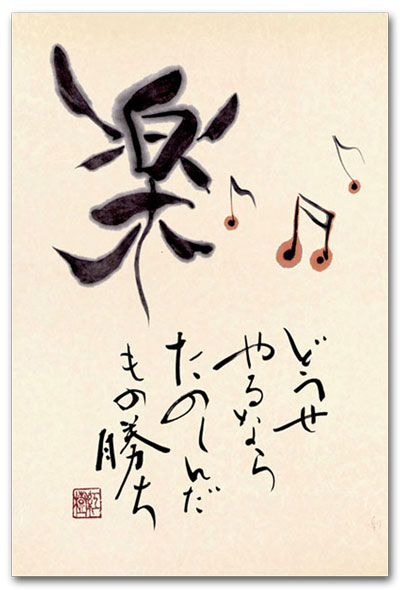 楽
どうせ
やるなら
たのしんだ
もの勝ち